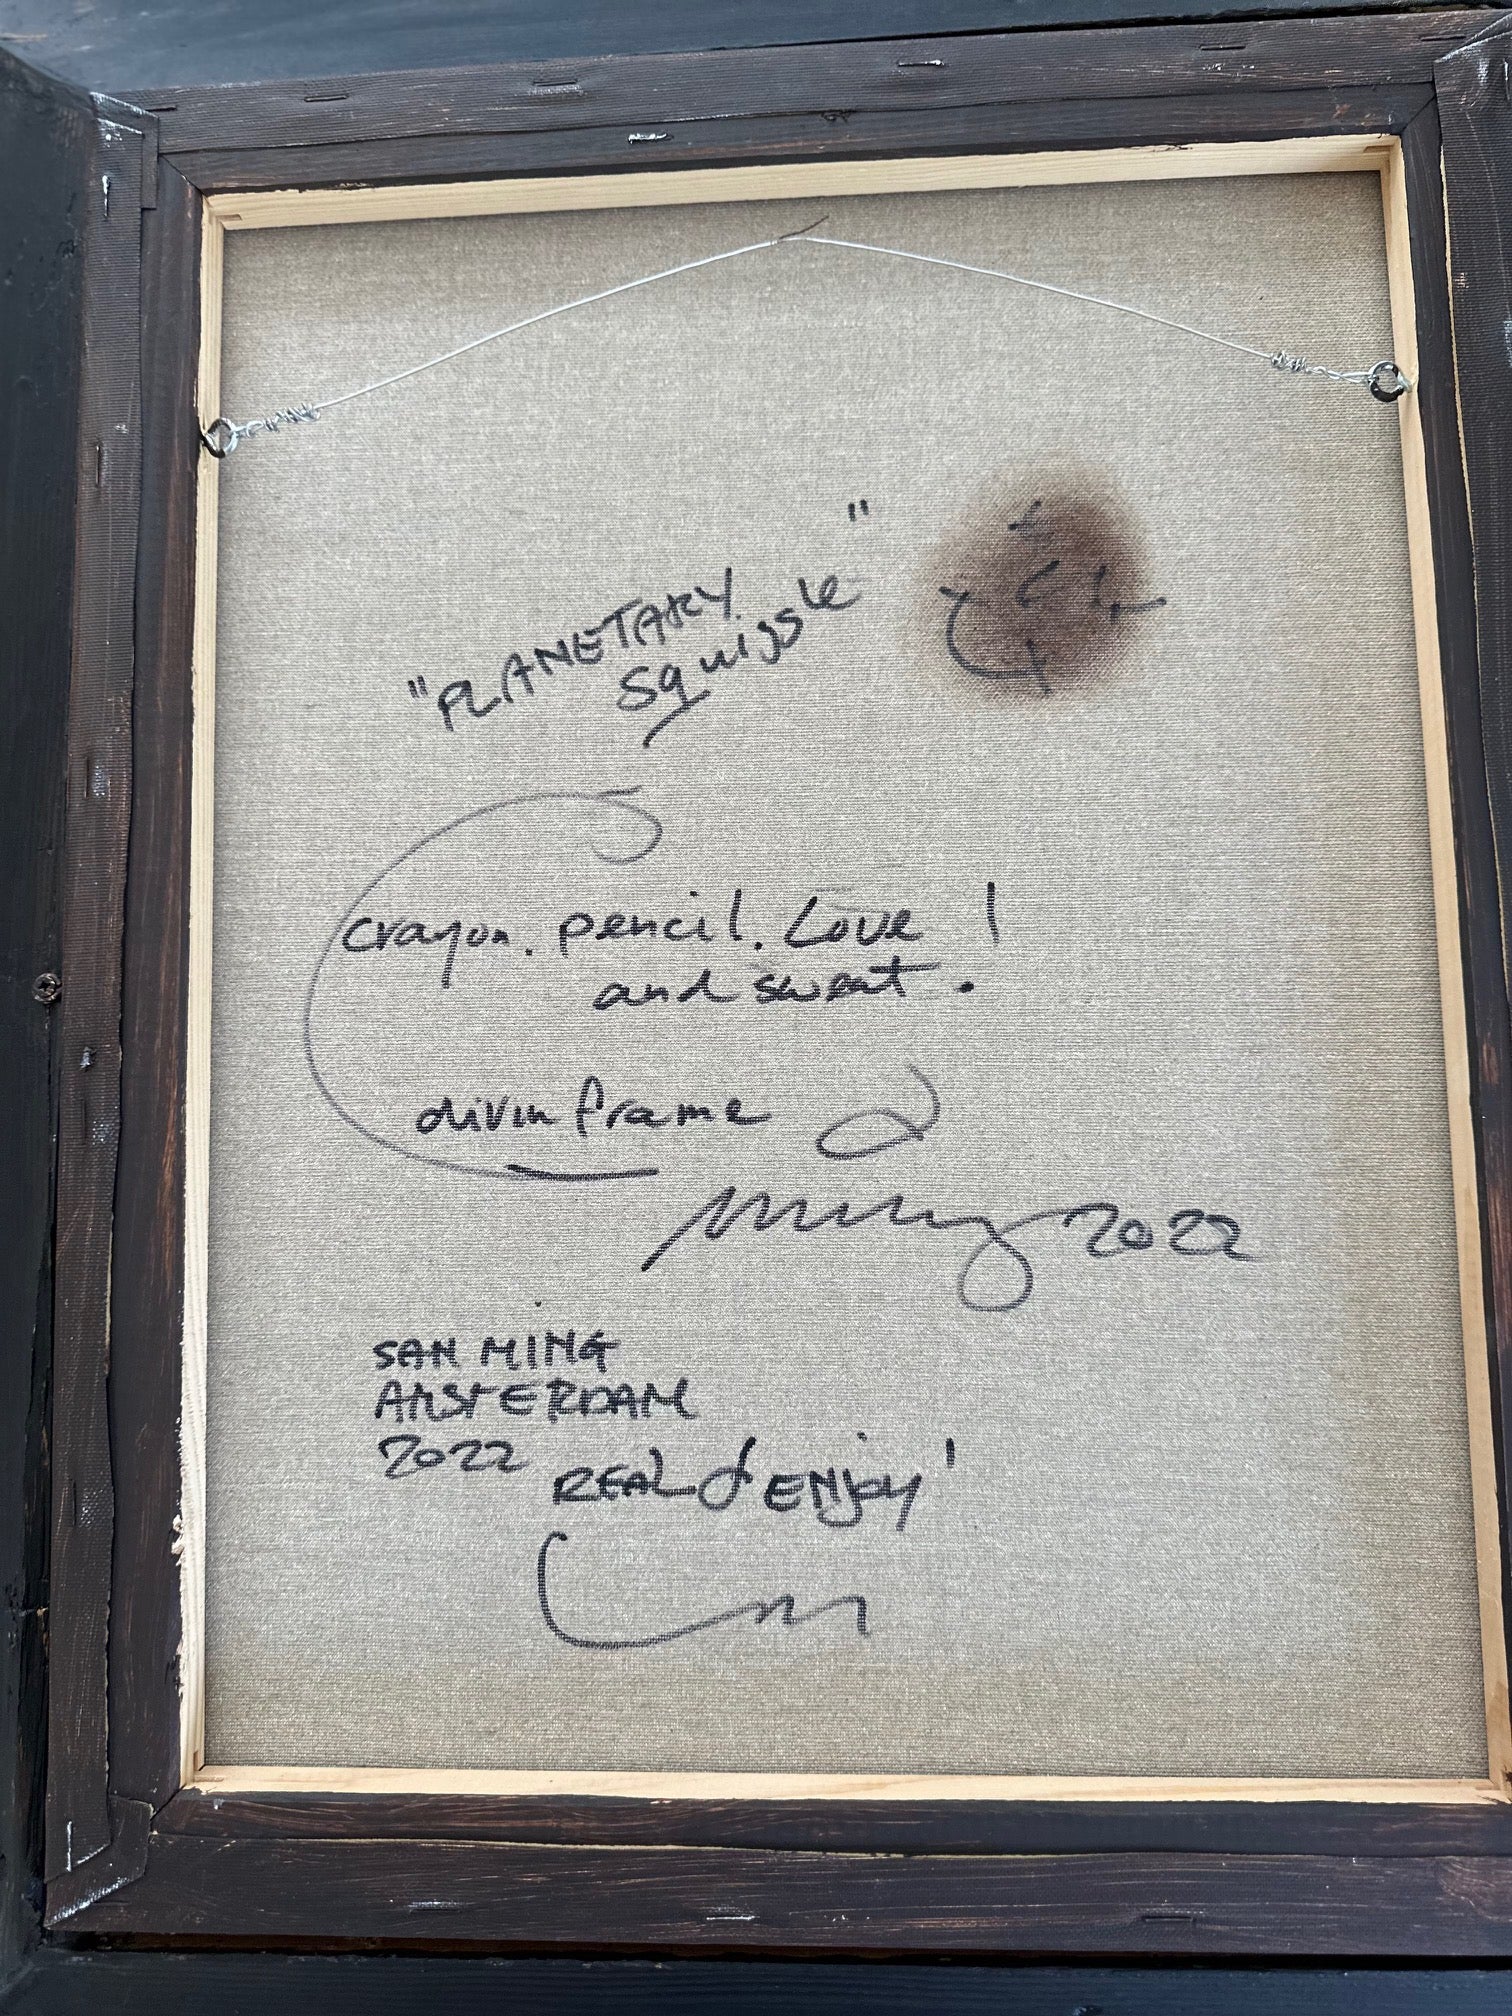 "PLANETARY
squiggle"
crayon. pencil. Love !
and sweat.
divin frame
2022
SAN MING
AMSTERDAM
2022
REAL & ENJOY!